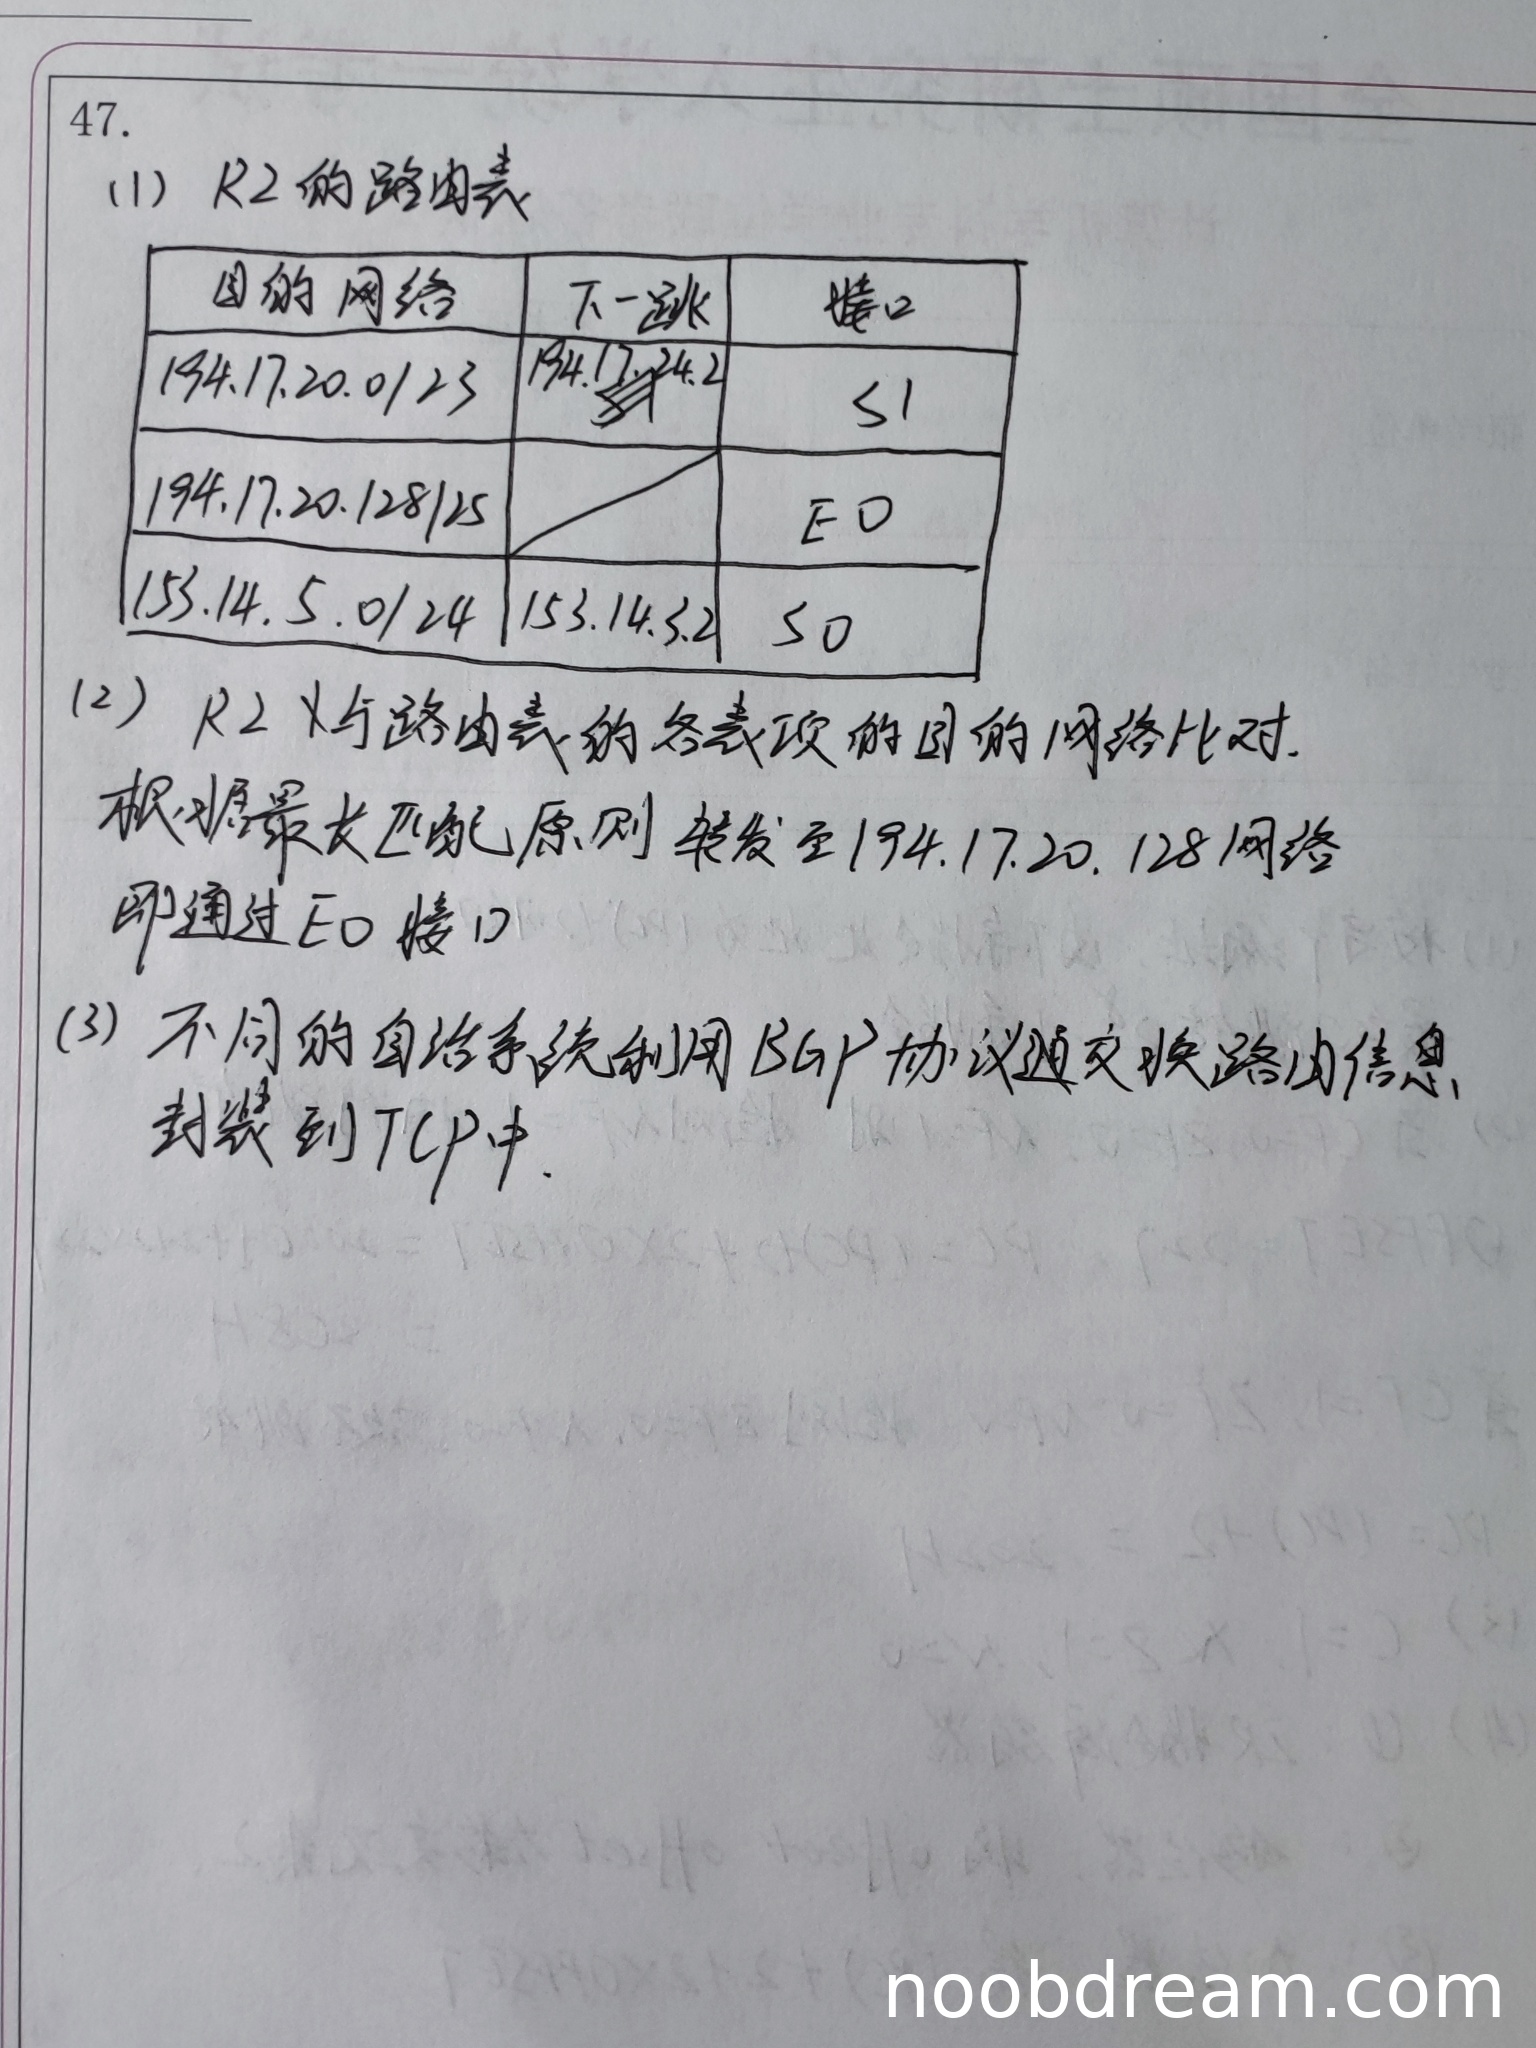 47.
(1) R2的路由表
目的网络 下一跳 接口
194.17.20.0/23 194.17.24.2 S1
194.17.20.128/25 E0
153.14.5.0/24 153.14.3.2 S0
(2) R2 与路由表的各表项的目的网络比对.
根据最长匹配原则 转发至194.17.20.128网络
即通过E0 接口
(3) 不同的自治系统利用BGP协议 交换路由信息
封装到TCP中.
noobdream.com